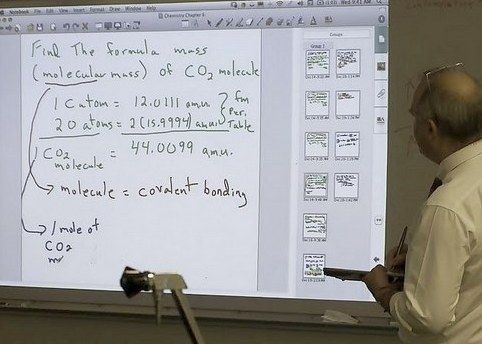 Notebook File Edit View Insert Format Draw Window Help
Wed 9:41 AM
Chemistry Chapter 6
Groups
Group 1
Find The formula mass
(molecular mass) of CO2 molecule
1 C atom = 12.0111 amu.
2 O atoms = 2(15.9994) amu.
fm
Per.
Table
1 CO2
molecule = 44.0099 amu.
molecule = covalent bonding
1 mole of
CO2